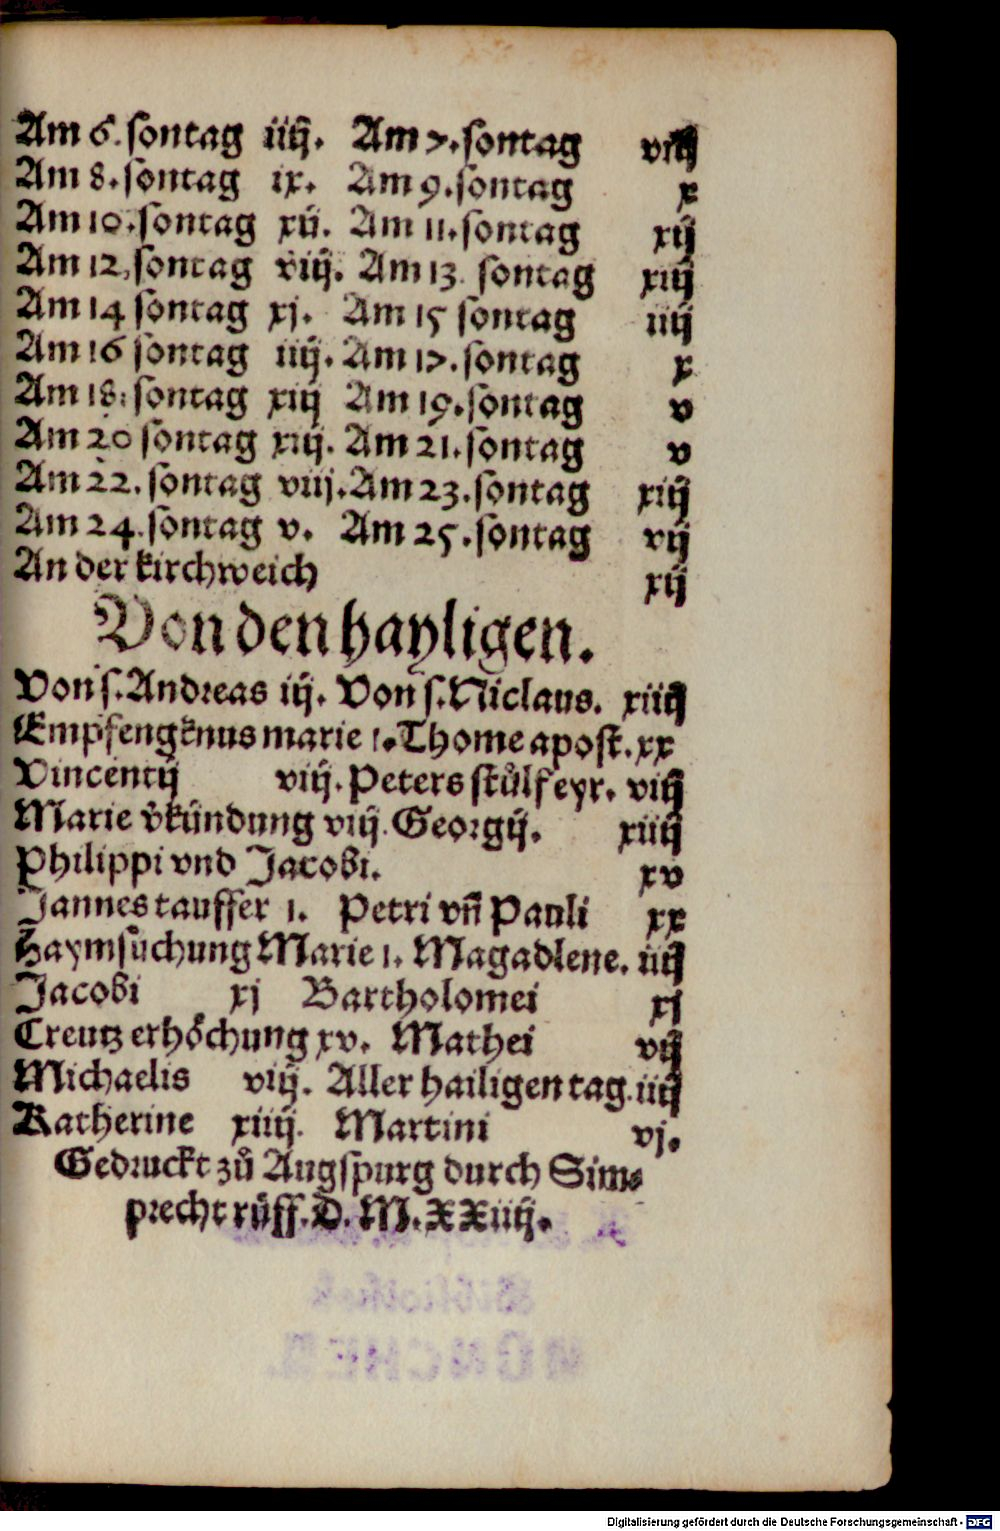 Am 6. sontag iiij. Am 7. sontag viij
Am 8. sontag ix. Am 9. sontag x
Am 10. sontag xij. Am 11. sontag xij
Am 12. sontag viij. Am 13 sontag xiij
Am 14 sontag xj. Am 15 sontag iiij
Am 16 sontag iiij. Am 17. sontag x
Am 18. sontag xiij Am 19. sontag v
Am 20 sontag xiij. Am 21. sontag v
Am 22. sontag viij. Am 23. sontag xiij
Am 24. sontag v. Am 25. sontag vij
An der kirchweich xij
Von den hayligen.
Von s. Andreas iij. Von s. Niclaus. xiiij
Empfengknus marie 1. Thome apost. xx
Vincentij viij. Peters stůlfeyr. viij
Marie v̓kündung viij. Georgij. xiiij
Philippi vnd Jacobi. xv
Jannes tauffer 1. Petri vñ Pauli xx
Haymsůchung Marie 1. Magadlene. iiij
Jacobi xj Bartholomei xj
Creutz erhöchung xv. Mathei vij
Michaelis viij. Aller hailigen tag. iiij
Katherine xiiij. Martini vj.
Gedruckt zů Augspurg durch Sim⸗
precht růff. D. M. XXiiij.
Bibliothek
MÜNCHEN.
Digitalisierung gefördert durch die Deutsche Forschungsgemeinschaft - DFG